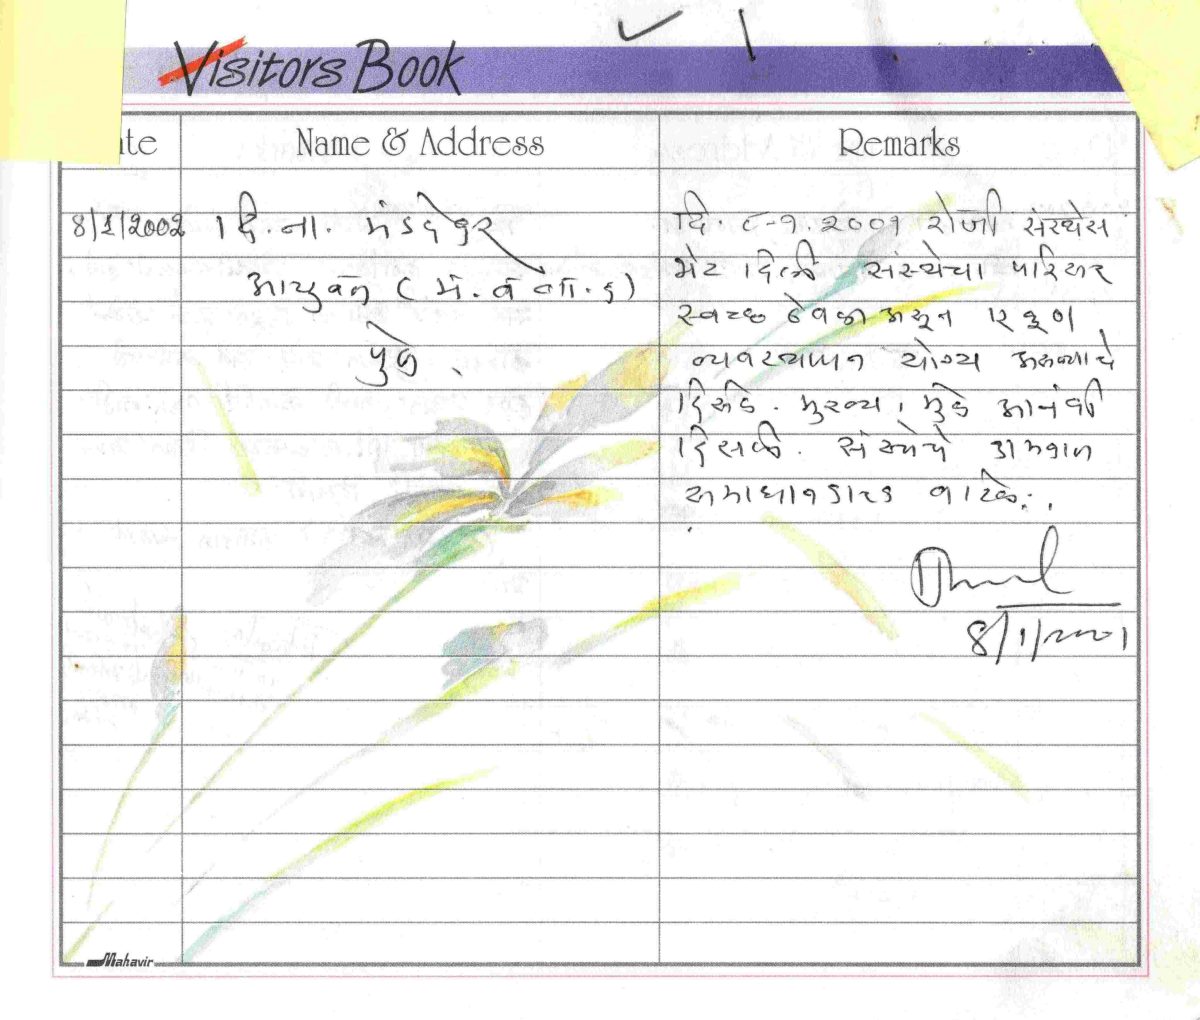 Visitors Book
ate
Name & Address
Remarks
8/1/2002
दि. ना. मंडदेकुर
आयुक्त (म. व बा. क)
पुणे.
दि. ८-१.२००१ रोजी संस्थेस
भेट दिली संस्थेचा परिसर
स्वच्छ ठेवला असून एकूण
व्यवस्थापन योग्य असल्याचे
दिसले. मुख्य, मुले आनंदी
दिसली. संस्थेचे कामकाज
समाधानकारक वाटले.
8/1/2001
Mahavir